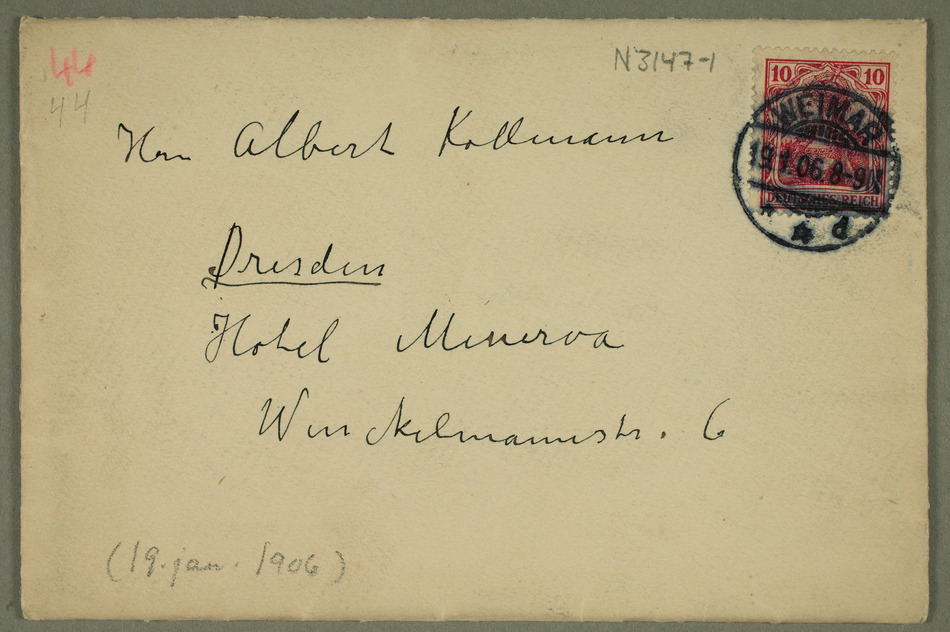 44
44
N3147-1
10 10
DEUTSCHES REICH
WEIMAR
19.1.06. 8-9V
* * d
Herrn Albert Kollmann
Dresden
Hotel Minerva
Winckelmannstr. 6
(19. jan. 1906)